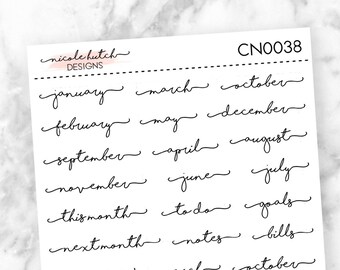 nicole hutch
DESIGNS
CN0038
january march october
february may december
september april august
november june july
this month to do goals
next month notes bills
october